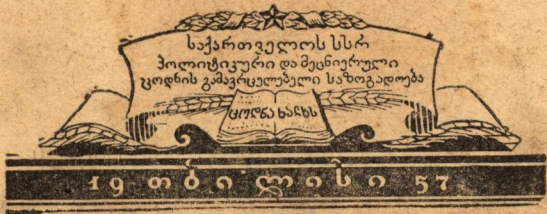 საქართველოს სსრ
პოლიტიკური და მეცნიერული
ცოდნის გამავრცელებელი საზოგადოება
ცოდნა ხალხს
19 თბილისი 57